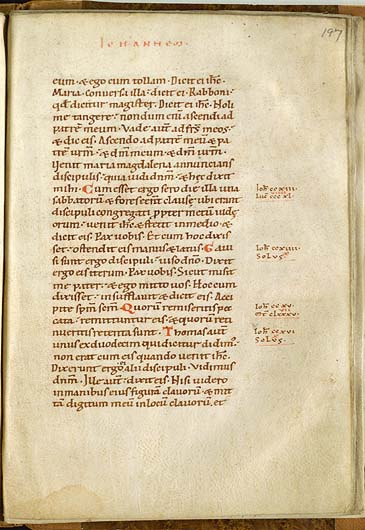 IOHANNEM
197
eum · & ego eum tollam · Dicit ei ihc ·
Maria · Conversa illa · dicit ei · Rabboni ·
qd dicitur magister · Dicit ei ihc · Noli
me tangere · nondum enī ascendi ad
patrē meum · Vade aut ad frs meos ·
& dic eis · Ascendo ad patrē meū & pa
trē urm̄ · & dm̄ meum · & dm̄ urm̄ ·
Venit maria magdalena annuncians
discipulis · quia uidi dnm̄ · & hęc dixit
mihi · Cum esset ergo sero die illa una
sabbatorū · & fores essent clausę · ubi erant
discipuli congregati ppter metū iudę
orum · uenit ihc & stetit in medio · &
dicit eis · Pax vobis · Et cum hoc dixis
set · ostendit eis manus & latus · Gaui
si sunt ergo discipuli · uiso dnō · Dixit
ergo eis iterum · Pax vobis · Sicut misit
me pater · & ego mitto vos · Hoc cum
dixisset · insufflavit & dicit eis · Acci
pite spm̄ scm̄ · Quorū remiseritis pec
cata · remittuntur eis · & quorū reti
nueritis retenta sunt · Thomas aut
unus ex duodecim qui dicitur didim ·
non erat cum eis quando venit ihc ·
Dixerunt ergo alii discipuli · Vidimus
dnm̄ · Ille aut dixit eis · Nisi videro
in manibus eius figurā clavorū · & mit
tā digitum meū in locū clavorū · et
Ioh ccxiii
Luc cccxl
Ioh ccxiiii
Solus
Ioh ccxv
Ioh ccxvi
Solus